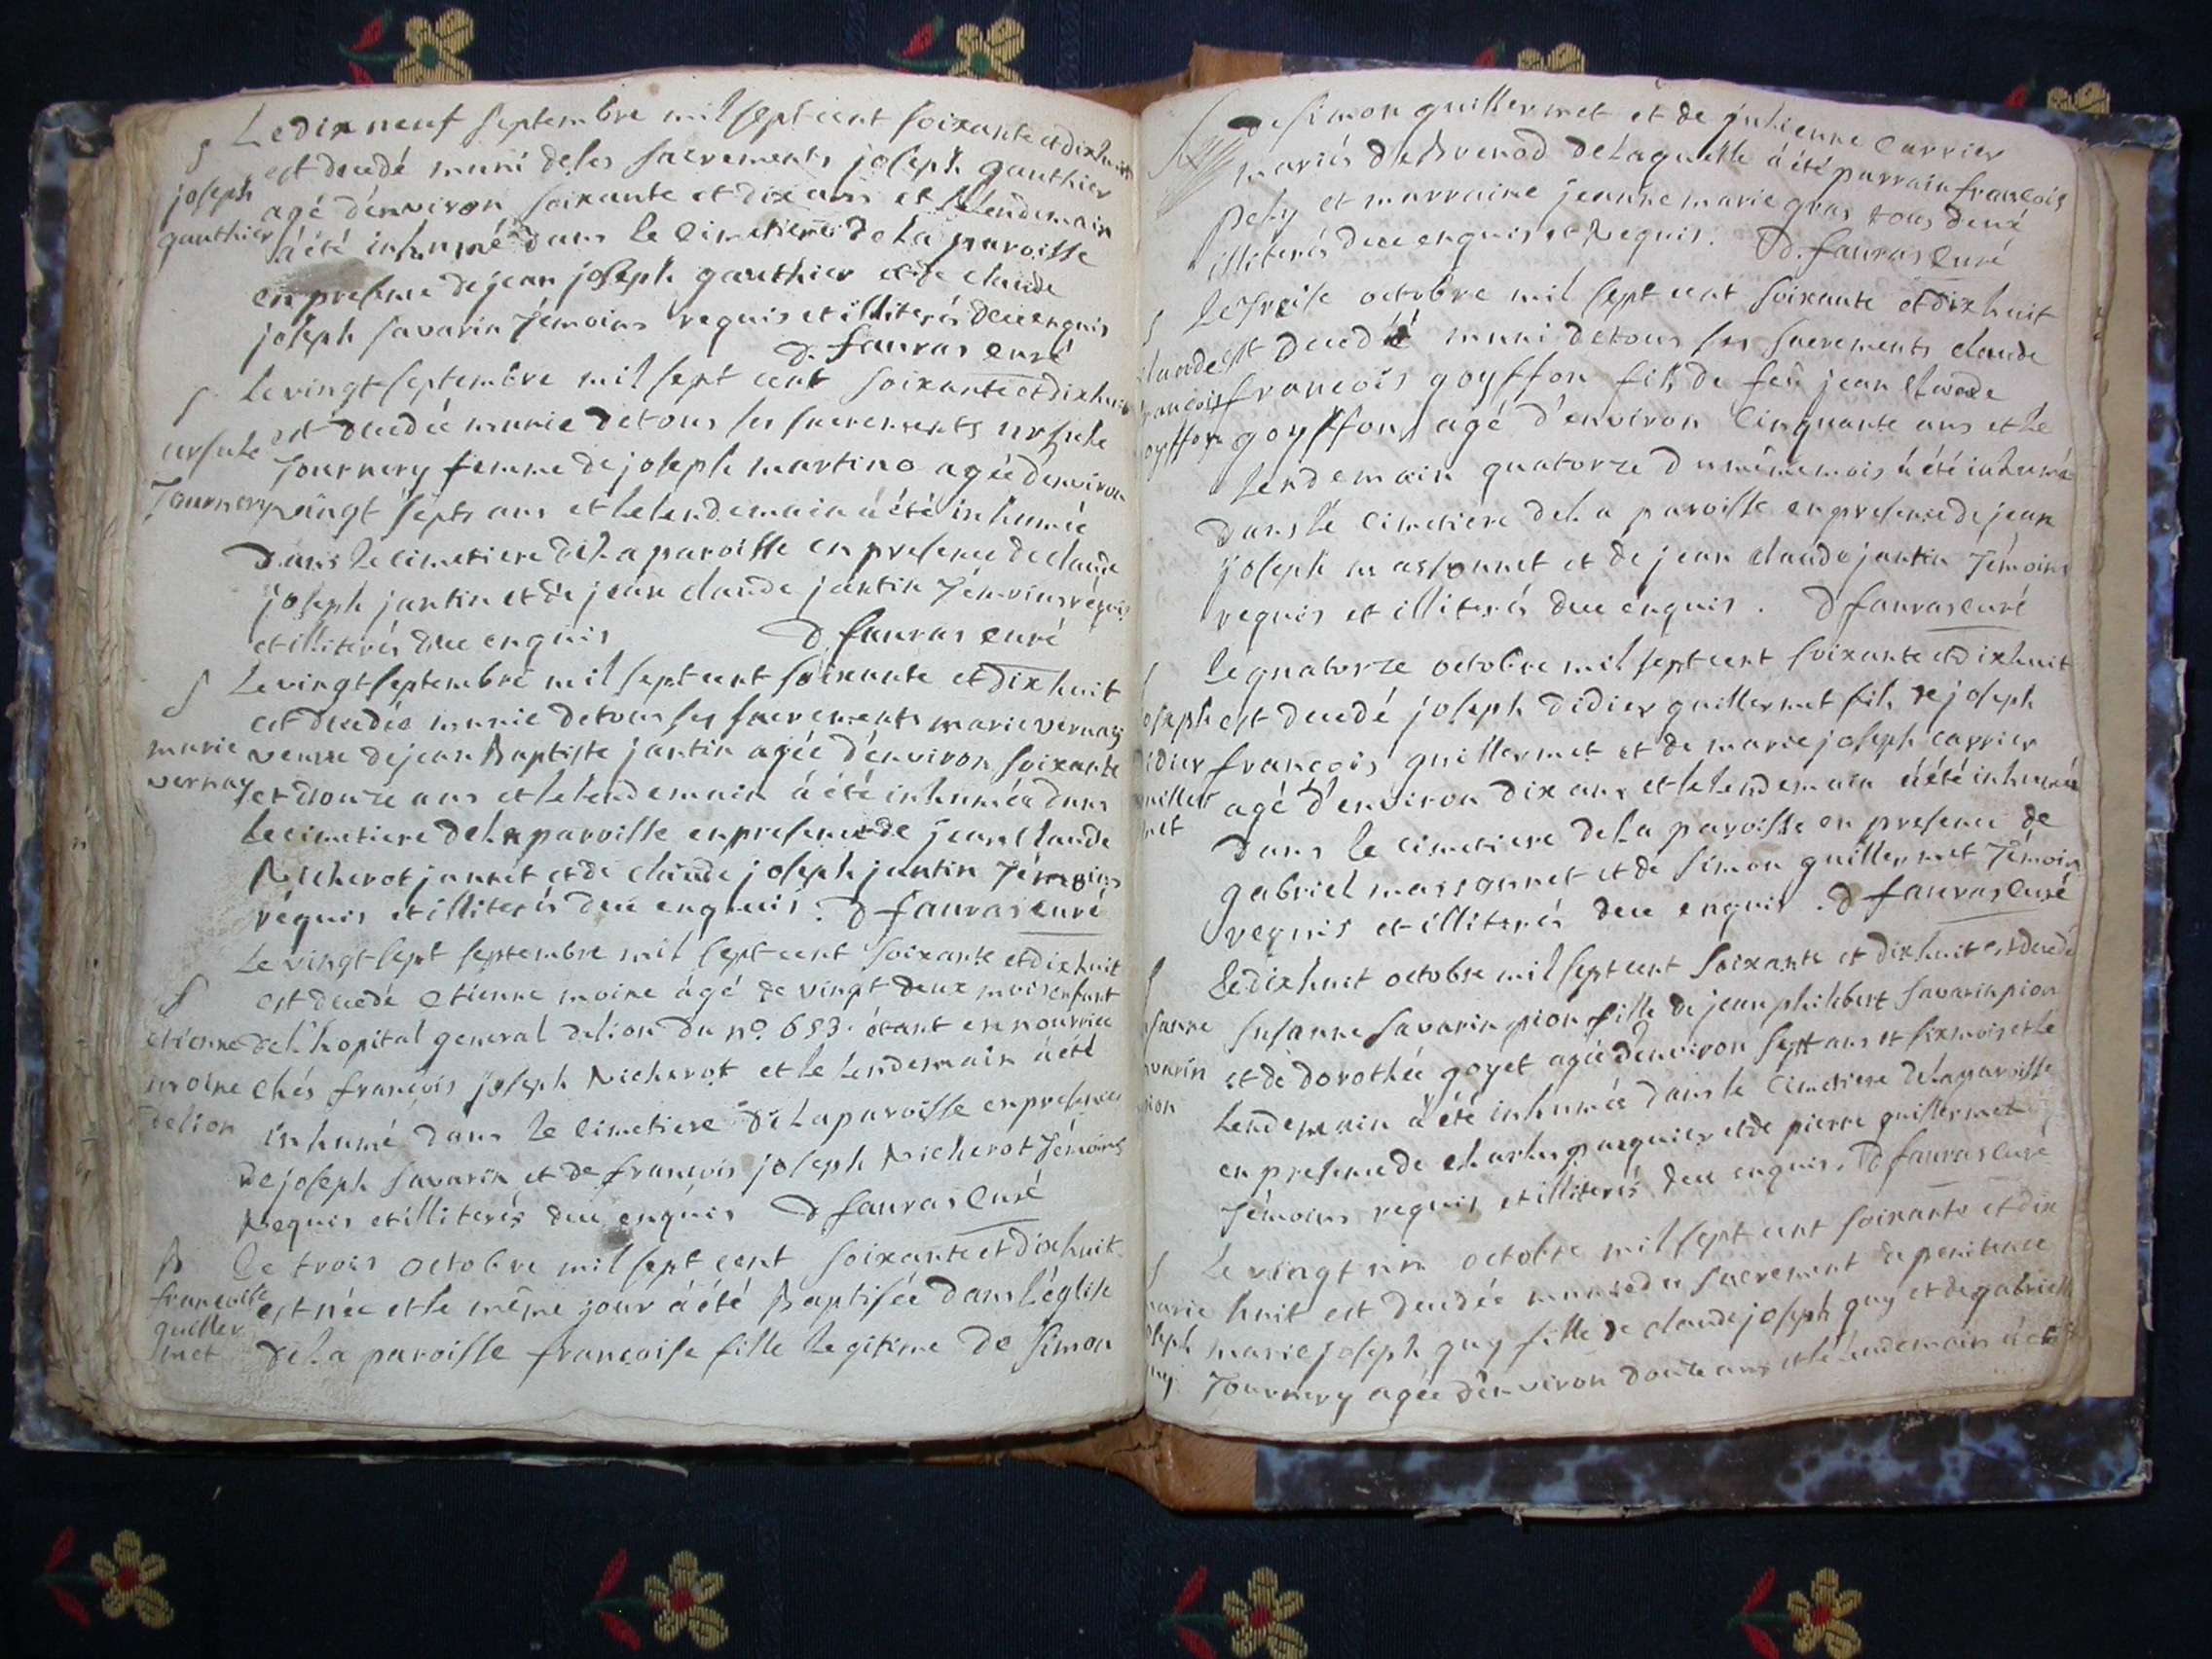 S Le dix neuf septembre mil sept cent soixante et dixhuit
est decedé muni de ses sacrements joseph gauthier
joseph agé d'environ soixante et dix ans et le lendemain
gauthier à été inhumé dans le cimetiere de la paroisse
en presence de jean joseph gauthier et de claude
joseph savarin témoins requis et illiterés de ce enquis
D. fauras curé
S le vingt septembre mil sept cent soixante et dixhuit
est decedée munie de tous ses sacrements ursule
ursule Tournery femme de joseph martino agée d'environ
Tournery vingt sept ans et le lendemain à été inhumée
dans le cimetiere de la paroisse en presence de claude
joseph jantin et de jean claude jantin témoins requis
et illiterés de ce enquis D fauras curé
S Le vingt septembre mil sept cent soixante et dix huit
est decedée munie de tous ses sacrements marie vernay
marie veuve de jean Baptiste jantin agée d'environ soixante
vernay et douze ans et le lendemain à été inhumée dans
le cimetiere de la paroisse en presence de jean claude
Nicherot jannet et de claude joseph jantin témoins
réquis et illiterés de ce enquis. D fauras curé
Le vingt sept septembre mil sept cent soixante et dixhuit
S est decedé etienne moine âgé de vingt deux mois enfant
etienne de l'hopital general de lion du no. 653. étant en nourrice
moine chés françois joseph Nicherot et le lendemain à été
de lion inhumé dans le cimetiere de la paroisse en presence
de joseph savarin et de francois joseph Nicherot témoins
Requis et illiterés de ce enquis D fauras curé
B Le trois octobre mil sept cent soixante et dixhuit
francoise est née et le même jour à été Baptisée dans l'église
guiller de la paroisse francoise fille legitime de simon
met
de simon guillermet et de julienne carrier
mariés de Brenod de laquelle à été parrain francois
et marraine jeanne marie gras tous deux
illiterés de ce enquis et Requis. D. fauras curé
S Le treise octobre mil sept cent soixante et dix huit
claude est decedé muni de tous ses sacrements claude
francois francois goyffon fils de feu jean claude
goyffon goyffon agé d'environ cinquante ans et le
lendemain quatorze du même mois à été inhumé
dans le cimetiere de la paroisse en presence de jean
joseph massonnet et de jean claude jantin témoins
requis et illiterés de ce enquis. D fauras curé
Le quatorze octobre mil sept cent soixante et dixhuit
joseph est decedé joseph didier guillermet fils de joseph
didier francois guillermet et de marie joseph carrier
guiller agé d'environ dix ans et le lendemain à été inhumé
met dans le cimetiere de la paroisse en presence de
gabriel massonnet et de simon guillermet témoins
requis et illiterés de ce enquis. D fauras curé
S Le dixhuit octobre mil sept cent soixante et dixhuit est decedé
susanne susanne savarin pion fille de jean philibert savarin pion
savarin et de dorothée goyet agée d'environ sept ans et six mois et le
pion lendemain à été inhumée dans le cimetiere de la paroisse
en presence de charles paquier et de pierre guillermet
témoins requis et illiterés de ce enquis. D fauras curé
S Le vingt un octobre mil sept cent soixante et dix
marie huit est decedée munie du sacrement de penitence
joseph marie joseph guy fille de claude joseph guy et de gabrielle
guy Tournery agée d'environ douze ans et le lendemain à été